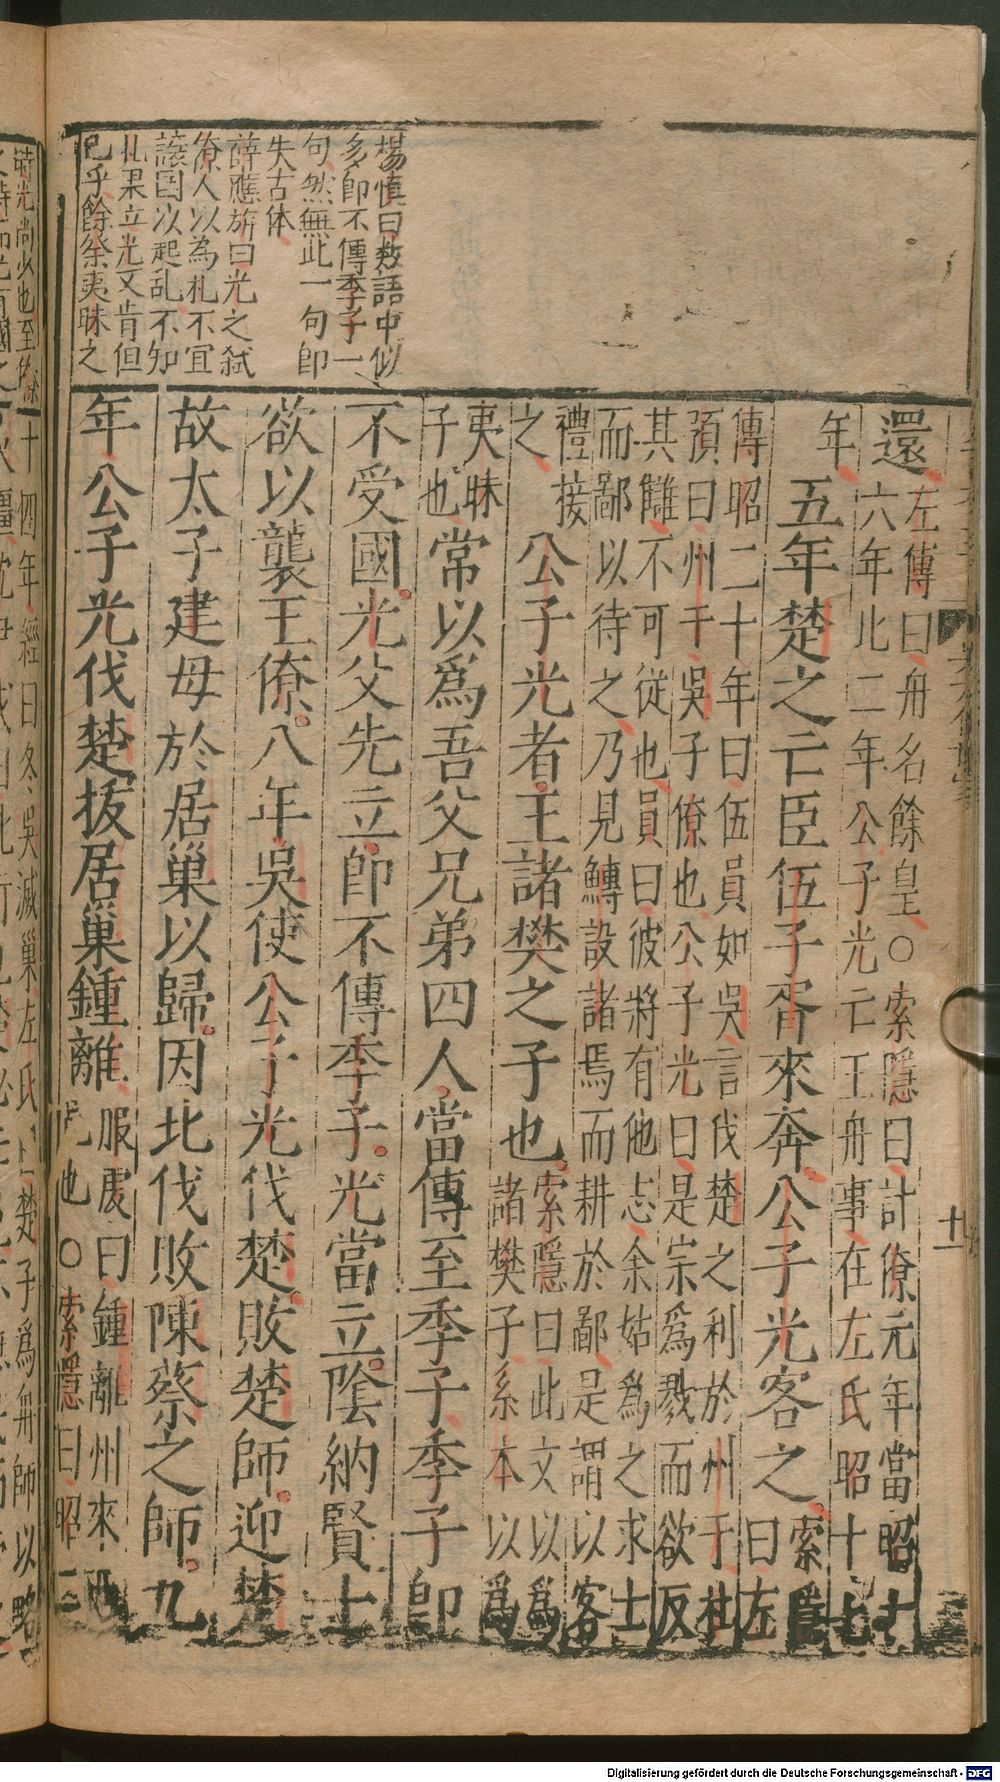 還
左傳曰舟名餘皇○索隱曰計僚元年當昭十
六年比二年公子光亡王舟事在左氏昭十七
年
五年楚之亡臣伍子胥來奔公子光客之
索隱曰左
傳昭二十年曰伍員如吳言伐楚之利於州于杜
預曰州于吳子僚也公子光曰是宗爲戮而欲反
其讎不可從也員曰彼將有他志余姑爲之求士
而鄙以待之乃見鱄設諸焉而耕於鄙是謂以客
禮接
之
公子光者王諸樊之子也
索隱曰此文以爲
諸樊子系本以爲
夷昧
子也
常以爲吾父兄弟四人當傳至季子季子卽
不受國光父先立卽不傳季子光當立陰納賢士
欲以襲王僚八年吳使公子光伐楚敗楚師迎楚
故太子建母於居巢以歸因北伐敗陳蔡之師九
年公子光伐楚拔居巢鍾離
服虔曰鍾離州來
邑也○索隱曰昭
楊慎曰数語中似
多卽不傳季子一
句然無此一句卽
失古体
薛應旂曰光之弑
僚人以為札不宜
讓国以起乱不知
札果立光又肯但
已乎餘祭夷昩之
時光尚少也至僚
十四年經曰冬吳滅巢左氏曰楚子爲舟師以略
十一
Digitalisierung gefördert durch die Deutsche Forschungsgemeinschaft - DFG